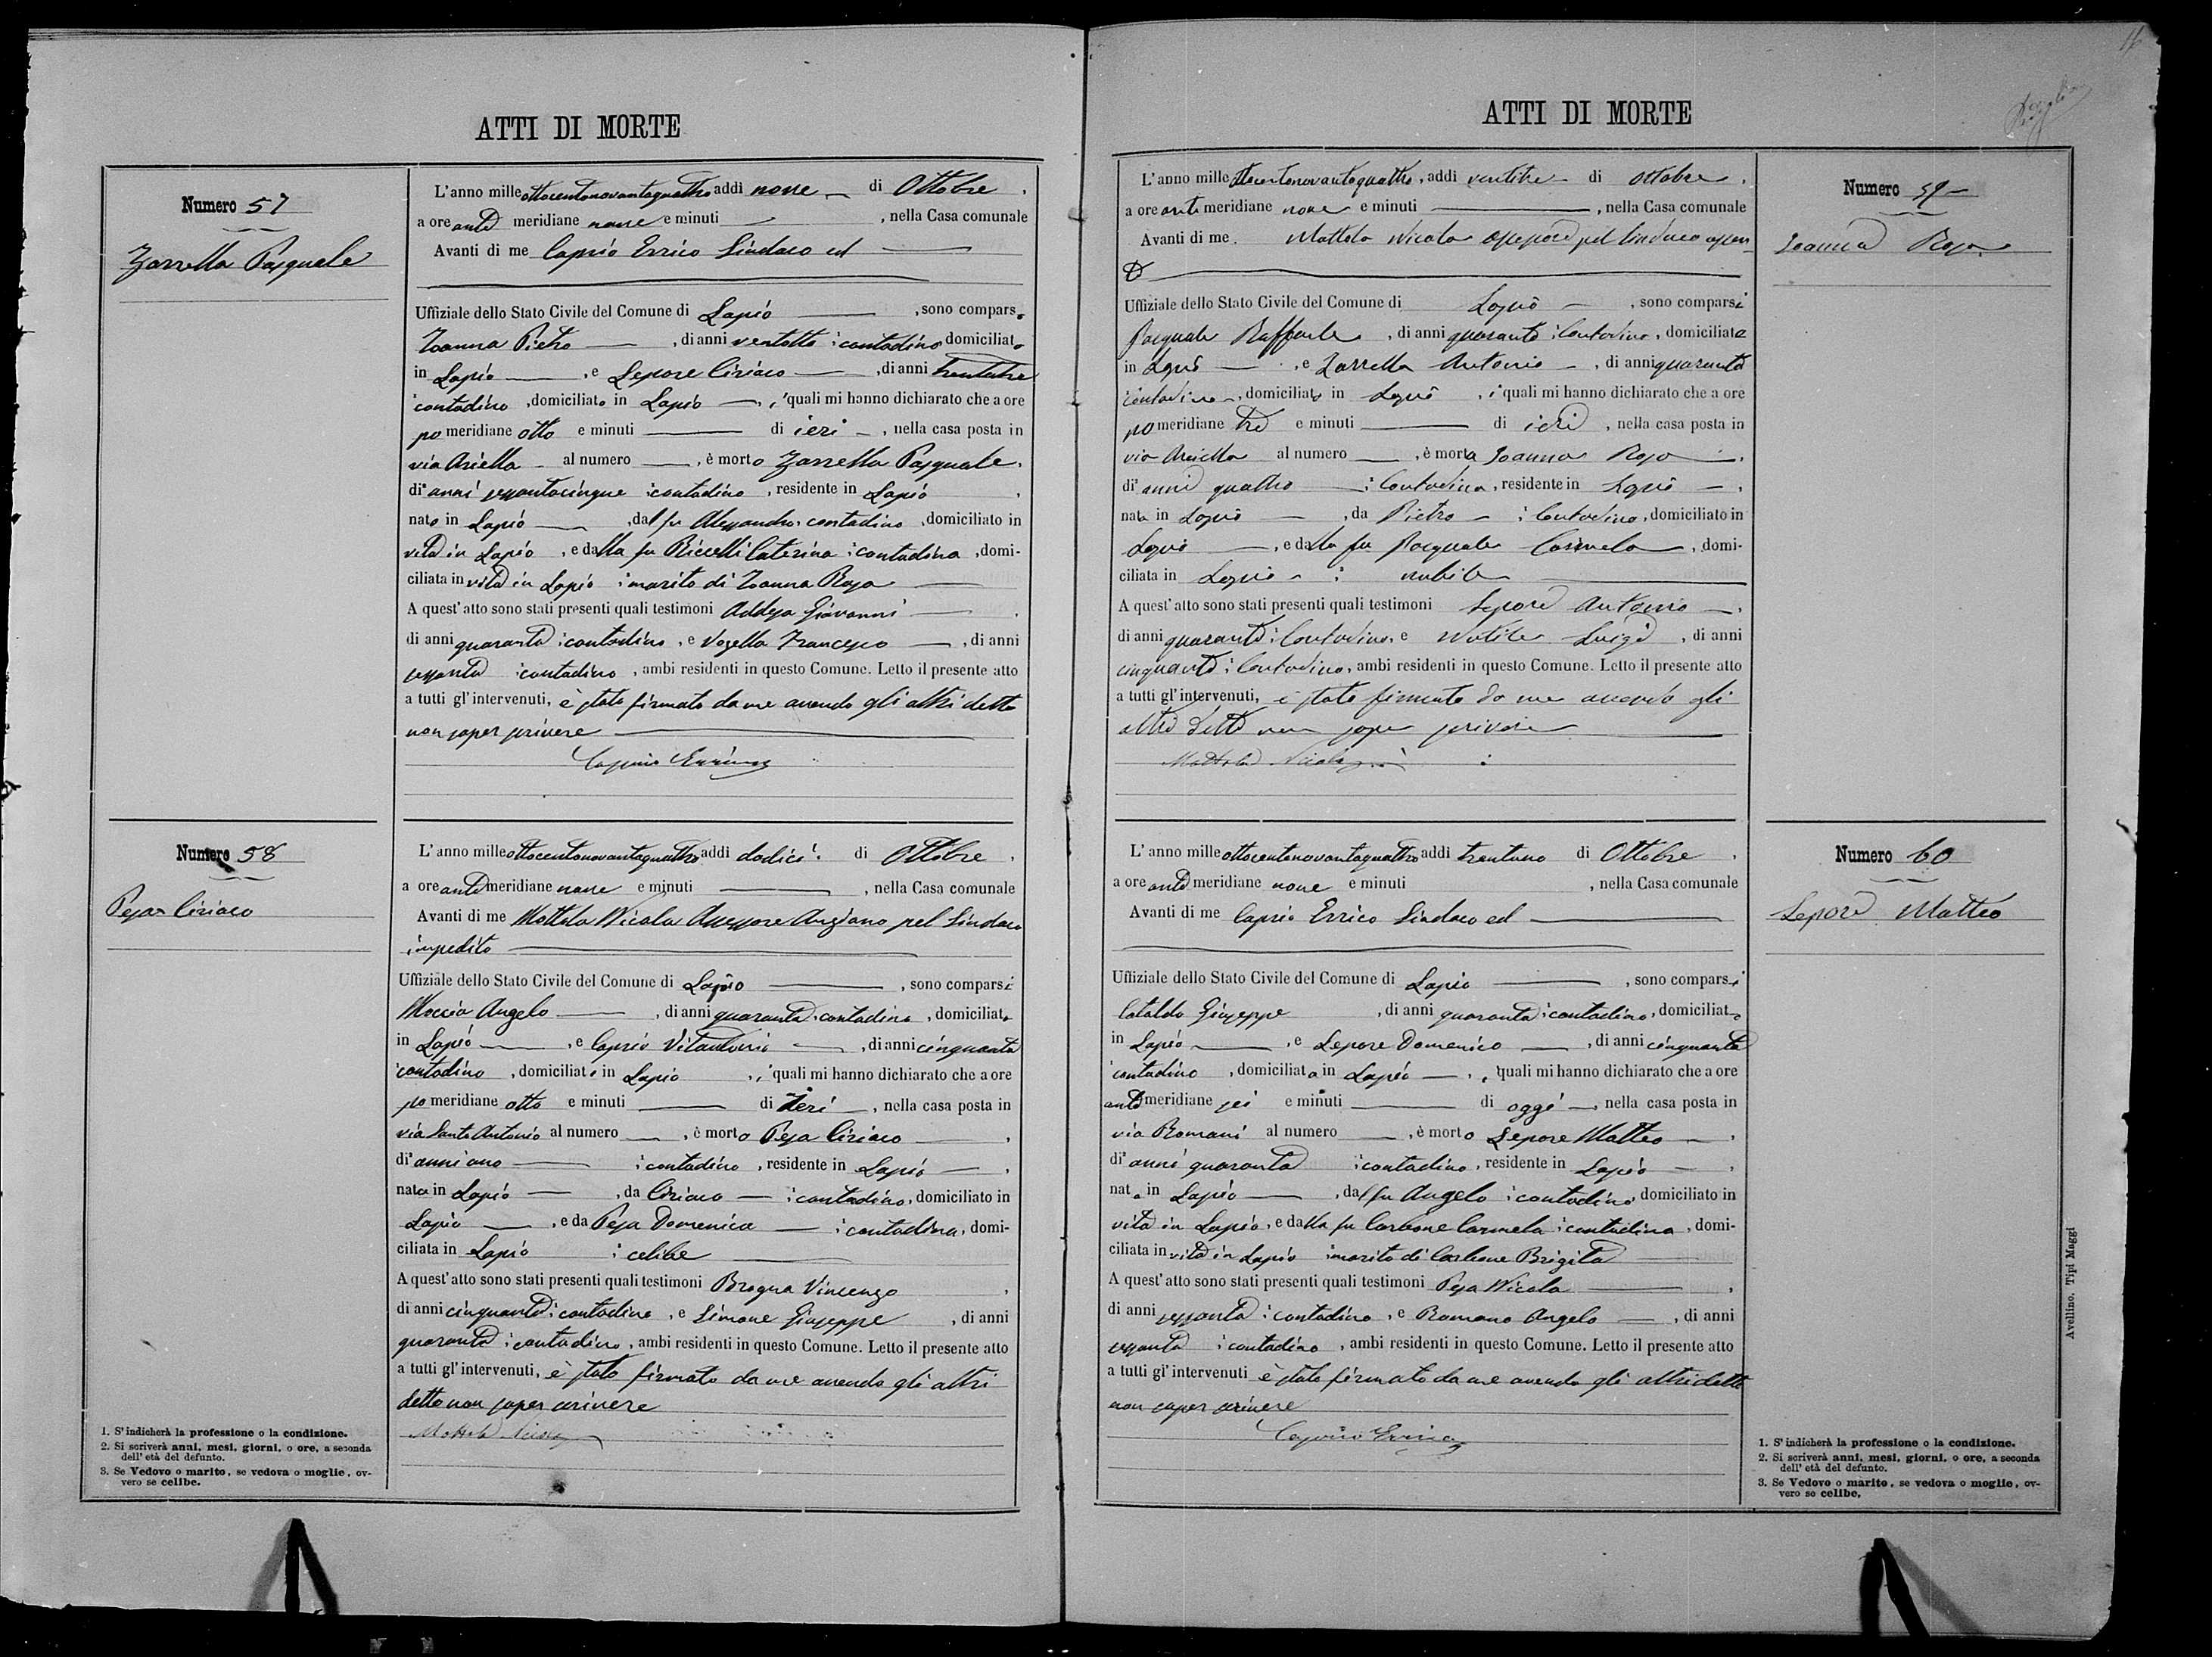 ATTI DI MORTE
Numero 57
Zarrella Pasquale
L'anno mille ottocentonovantaquattro addì nove di Ottobre,
a ore anti meridiane nove e minuti , nella Casa comunale
Avanti di me Caprio Errico Sindaco ed
Uffiziale dello Stato Civile del Comune di Lapio , sono compars
Ioanna Pietro , di anni ventotto contadino domiciliato
in Lapio , e Lepore Ciriaco , di anni trentatre
contadino , domiciliato in Lapio , i quali mi hanno dichiarato che a ore
po meridiane otto e minuti di ieri , nella casa posta in
via Ariella al numero , è morto Zarrella Pasquale,
di anni sessantacinque contadino , residente in Lapio ,
nato in Lapio , dal fu Alessandro, contadino , domiciliato in
vita in Lapio , e dalla fu Riccelli Caterina contadina , domi-
ciliata in vita in Lapio marito di Ioanna Rosa
A quest'atto sono stati presenti quali testimoni Addesa Giovanni ,
di anni quaranta contadino , e Vozella Francesco , di anni
sessanta contadino , ambi residenti in questo Comune. Letto il presente atto
a tutti gl'intervenuti, è stato firmato da me avendo gli altri detto
non saper scrivere
Caprio Errico
Numero 58
Pesa Ciriaco
L'anno mille ottocentonovantaquattro addì dodici di Ottobre ,
a ore anti meridiane nove e minuti , nella Casa comunale
Avanti di me Mottola Nicola Assessore Anziano pel Sindaco
impedito
Uffiziale dello Stato Civile del Comune di Lapio , sono comparsi
Moccia Angelo , di anni quaranta contadino , domiciliato
in Lapio , e Caprio Vitantonio , di anni cinquanta
contadino , domiciliato in Lapio , i quali mi hanno dichiarato che a ore
po meridiane otto e minuti di Ieri , nella casa posta in
via Santo Antonio al numero , è morto Pesa Ciriaco ,
di anni uno contadino , residente in Lapio ,
nato in Lapio , da Ciriaco contadino, domiciliato in
Lapio , e da Pesa Domenica contadina, domi-
ciliata in Lapio celibe
A quest'atto sono stati presenti quali testimoni Brogna Vincenzo ,
di anni cinquanta contadino , e Simone Giuseppe , di anni
quaranta contadino , ambi residenti in questo Comune. Letto il presente atto
a tutti gl'intervenuti, è stato firmato da me avendo gli altri
detto non saper scrivere
Mottola Nicola
1. S'indicherà la professione o la condizione.
2. Si scriverà anni, mesi, giorni, o ore, a seconda
dell'età del defunto.
3. Se Vedovo o marito, se vedova o moglie, ov-
vero se celibe.
ATTI DI MORTE
L'anno mille ottocentonovantaquattro, addì ventitre di ottobre ,
a ore anti meridiane nove e minuti , nella Casa comunale
Avanti di me Mottola Nicola Assessore pel Sindaco
Uffiziale dello Stato Civile del Comune di Lapio , sono comparsi
Pasquale Raffaele , di anni quaranta Contadino, domiciliato
in Lapio , e Zarrella Antonio , di anni quaranta
contadino , domiciliato in Lapio , i quali mi hanno dichiarato che a ore
po meridiane tre e minuti di ieri , nella casa posta in
via Ariella al numero , è morta Ioanna Rosa ,
di anni quattro Contadina, residente in Lapio ,
nata in Lapio , da Pietro Contadino, domiciliato in
Lapio , e dalla fu Pasquale Carmela , domi-
ciliata in Lapio nubile
A quest'atto sono stati presenti quali testimoni Lepore Antonio ,
di anni quaranta Contadino, e Nutile Luigi , di anni
cinquanta Contadino, ambi residenti in questo Comune. Letto il presente atto
a tutti gl'intervenuti, è stato firmato da me avendo gli
altri detto non saper scrivere
Mottola Nicola
Numero 59
Ioanna Rosa
L'anno mille ottocentonovantaquattro addì trentuno di Ottobre ,
a ore anti meridiane nove e minuti , nella Casa comunale
Avanti di me Caprio Errico Sindaco ed
Uffiziale dello Stato Civile del Comune di Lapio , sono comparsi
Cataldo Giuseppe , di anni quaranta contadino, domiciliato
in Lapio , e Lepore Domenico , di anni cinquanta
contadino , domiciliato in Lapio , i quali mi hanno dichiarato che a ore
anti meridiane sei e minuti di oggi , nella casa posta in
via Romani al numero , è morto Lepore Matteo ,
di anni quaranta contadino, residente in Lapio ,
nato in Lapio , dal fu Angelo contadino domiciliato in
vita in Lapio, e dalla fu Carbone Carmela contadina , domi-
ciliata in vita in Lapio marito di Carbone Brigita
A quest'atto sono stati presenti quali testimoni Pesa Nicola ,
di anni sessanta contadino , e Romano Angelo , di anni
sessanta contadino , ambi residenti in questo Comune. Letto il presente atto
a tutti gl'intervenuti è stato firmato da me avendo gli altri detto
non saper scrivere
Caprio Errico
Numero 60
Lepore Matteo
1. S'indicherà la professione o la condizione.
2. Si scriverà anni, mesi, giorni, o ore, a seconda
dell'età del defunto.
3. Se Vedovo o marito, se vedova o moglie, ov-
vero se celibe.
Avellino, Tipi Maggi